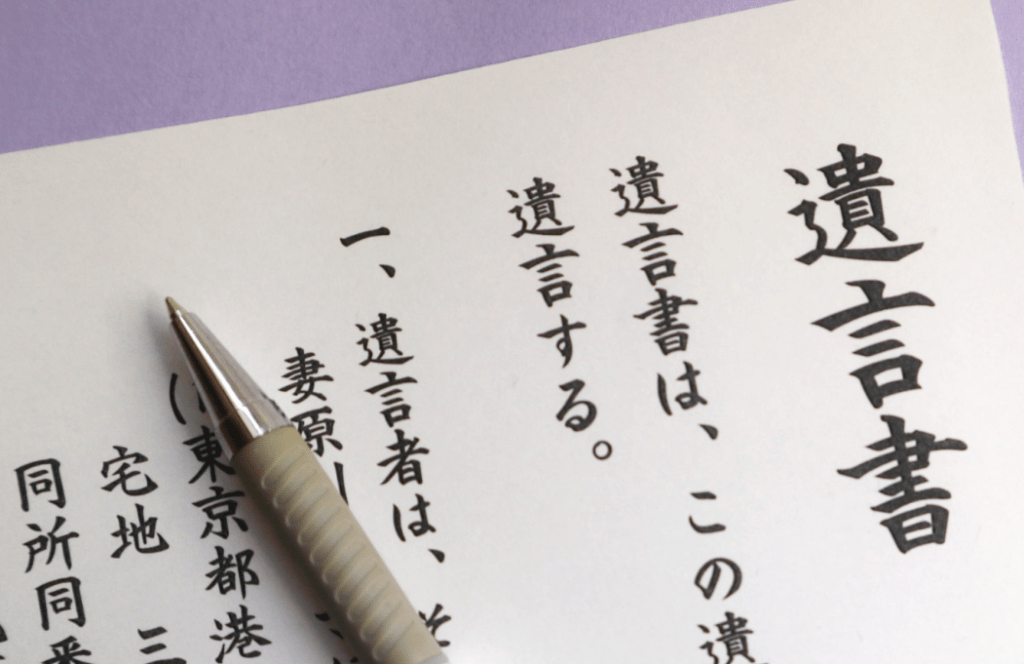 遺言書
遺言書は、この遺
遺言する。
一、遺言者は、
妻原
東京都港
宅地 三
同所同番